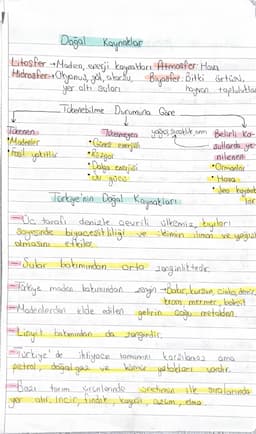 Doğal Kaynaklar
Litosfer → Maden, enerji kaynakları Atmosfer: Hava
Hidrosfer → Okyanus, göl, akarsu, Biyosfer: Bitki örtüsü,
yer altı suları hayvan toplulukları
Tükenebilme Durumuna Göre
Tükenen Tükenmeyen yağış, sıcaklık, nem Belirli Ko-
• Madenler • Güneş enerjisi şullarda ye-
• Fosil yakıtlar • Rüzgar nilenen
• Dalga enerjisi • Ormanlar
• Su gücü • Hava
• kaynak
lar
Türkiye'nin Doğal Kaynakları
Üç tarafı denizle çevrili ülkemiz, kıyıları
sayesinde biyoçeşitliliği ve iklimin ılıman ve yağışlı
olmasını etkiler
Sular bakımından orta zenginliktedir.
Türkiye maden bakımından zengin → Bakır, kurşun, çinko, demir,
krom, mermer, boksit
Madenlerden elde edilen gelirin çoğu metalden.
Linyit bakımından da zengindir.
Türkiye'de ihtiyacın tamamını karşılamaz ama
petrol, doğal gaz ve kömür yatakları vardır.
Bazı tarım ürünlerinde üretimin ilk sıralarında
yer alır. İncir, fındık, kayısı, üzüm, elma